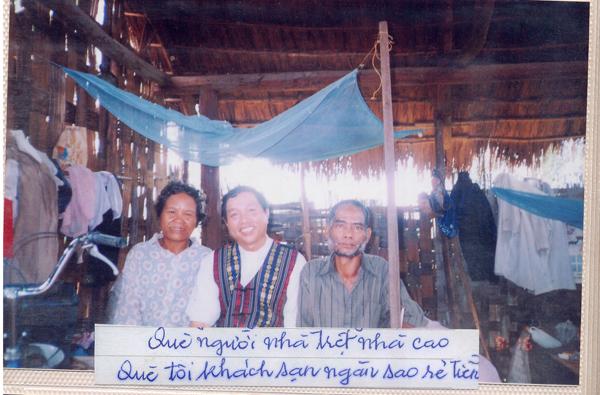 Quê người nhà trệt nhà cao
Quê tôi khách sạn ngàn sao rẻ tiền